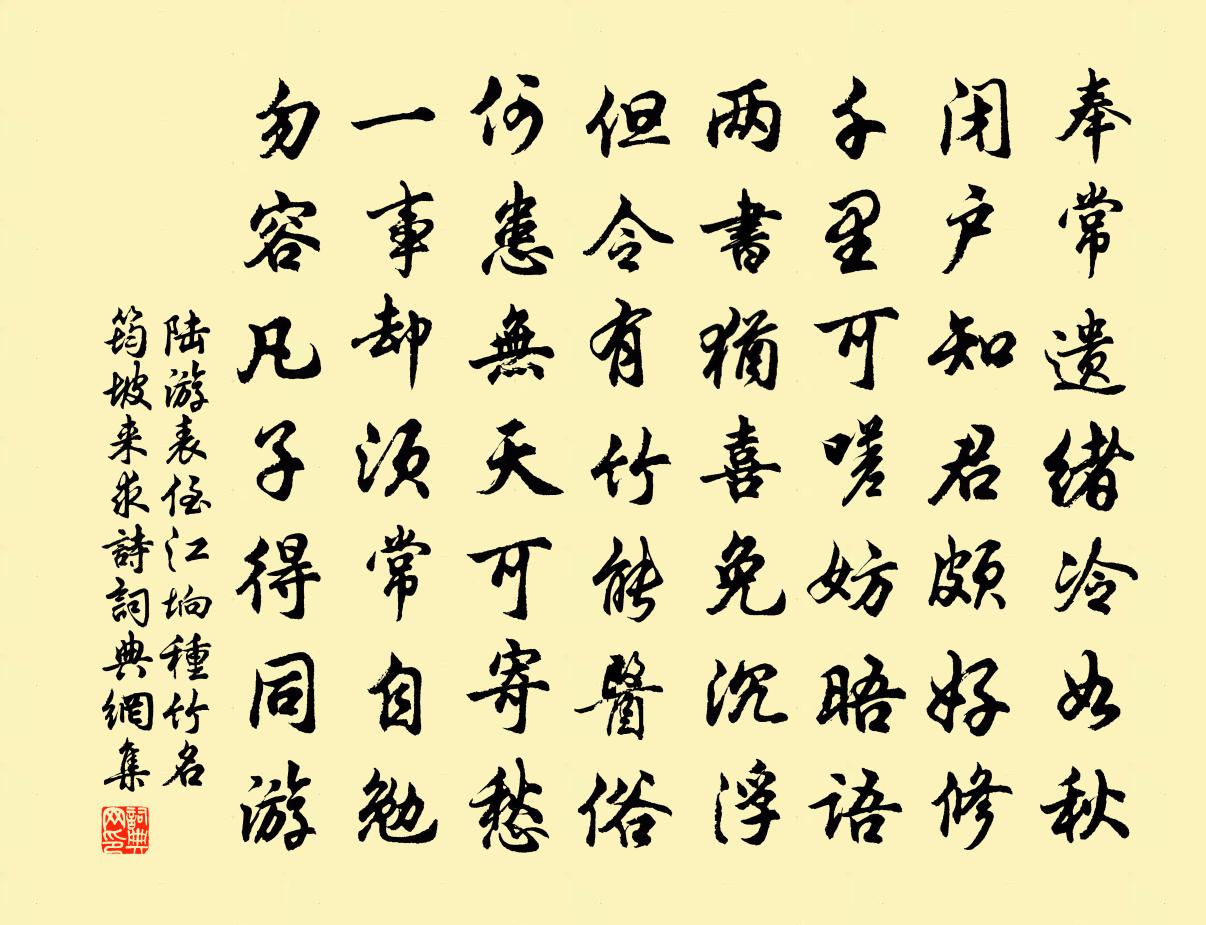 奉常遗绪冷如秋
闭户知君颇好修
千里可嗟妨晤语
两书犹喜免沉浮
但令有竹能医俗
何患無天可寄愁
一事却须常自勉
勿容凡子得同游
陆游表侄江坰種竹名
筠坡来求詩詞典網集
詞典
网印